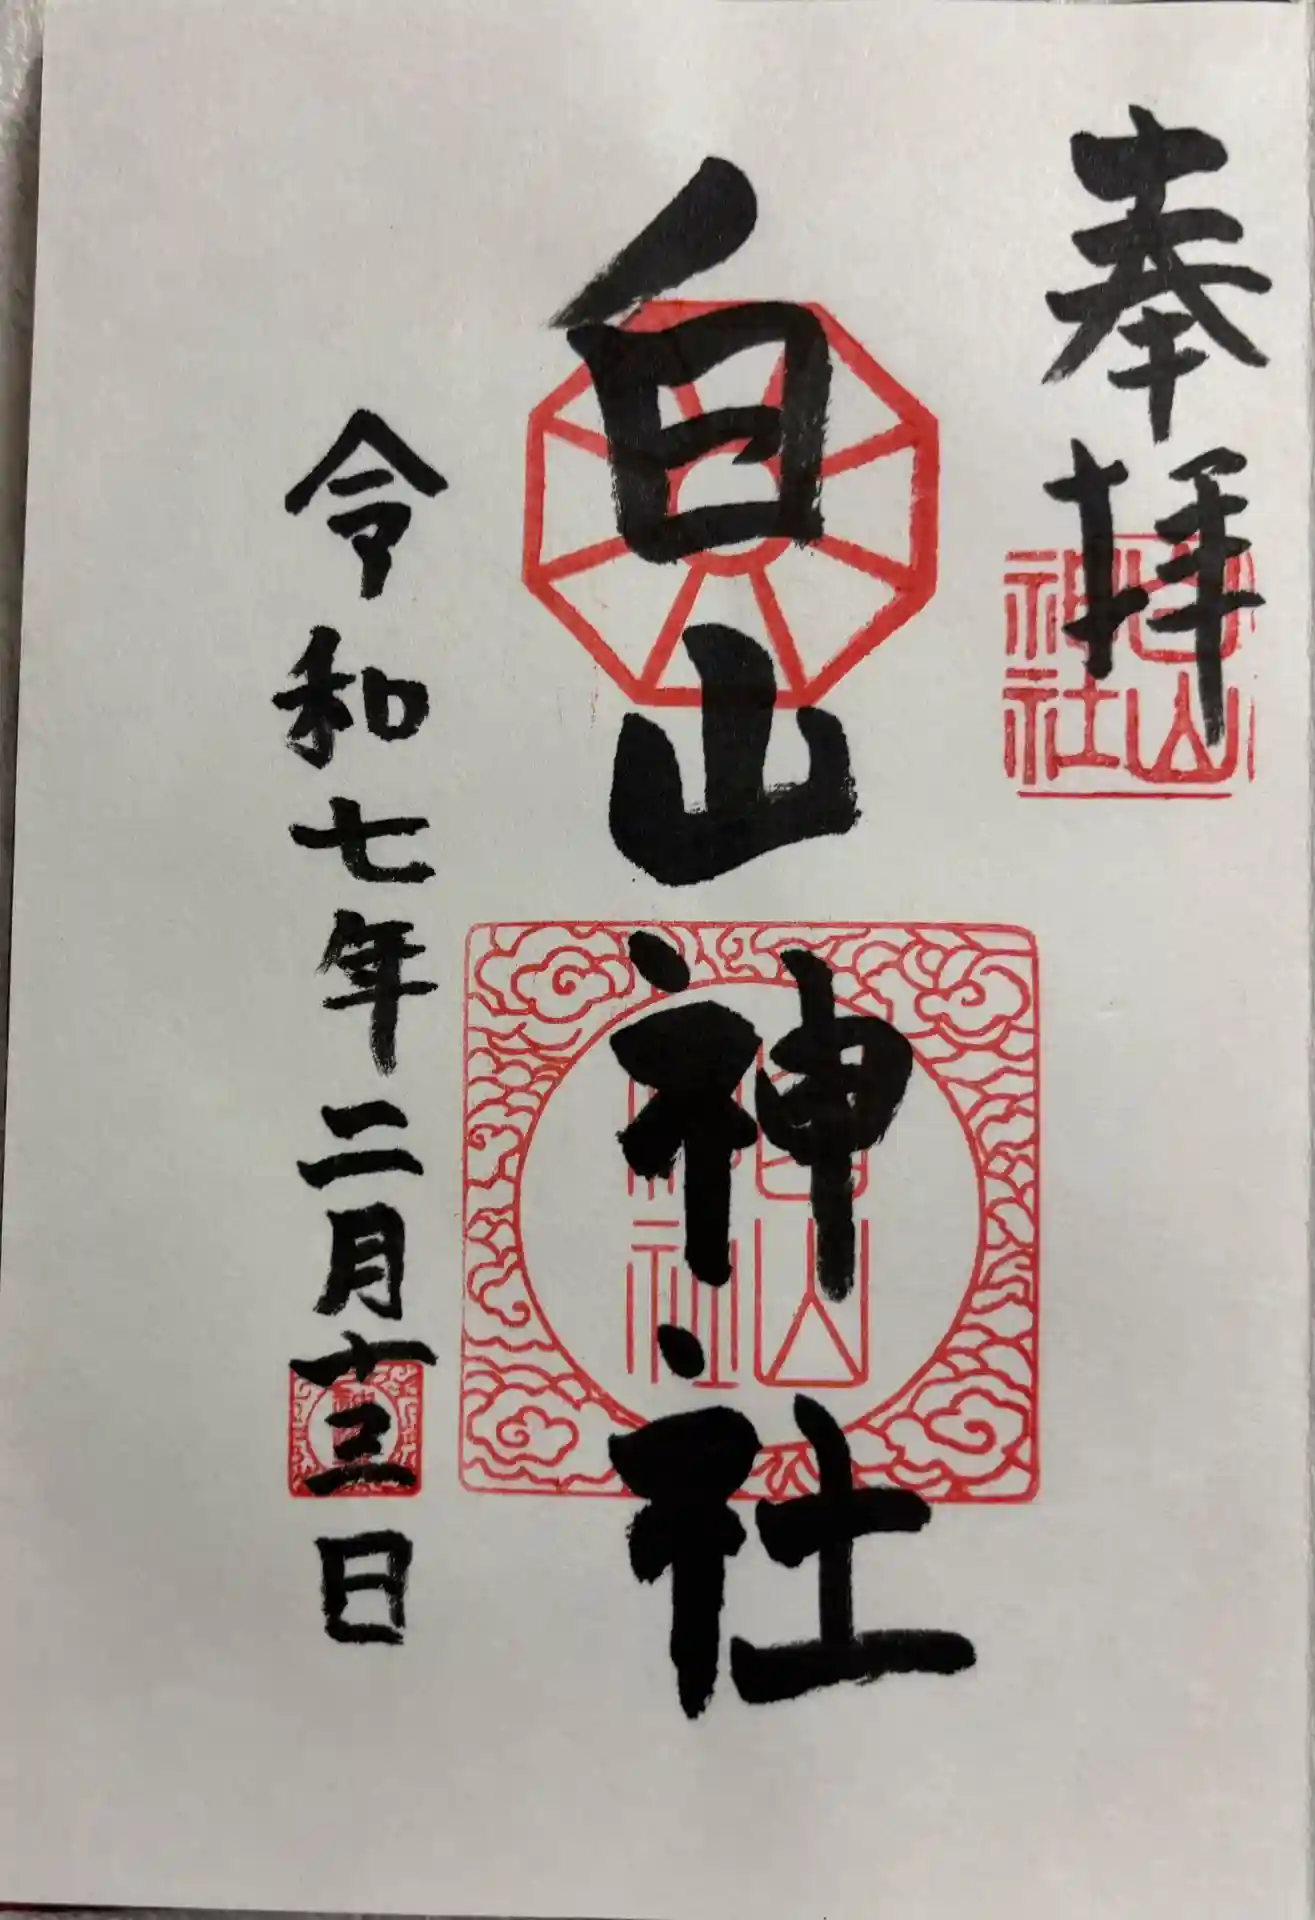 奉拝
白山神社
白山神社
白山神社
令和七年二月十三日